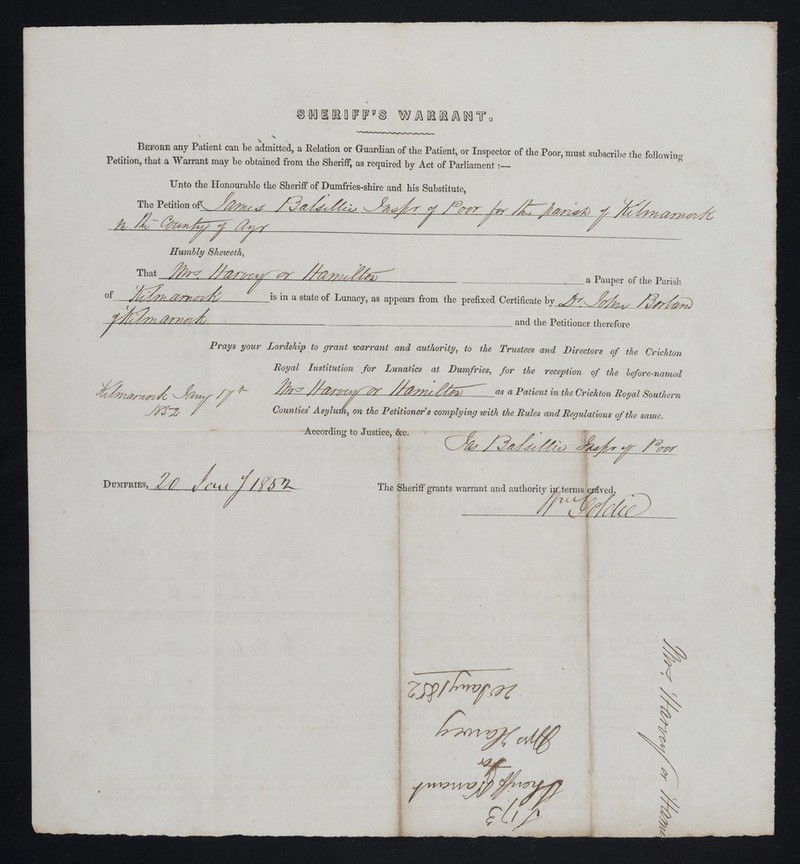 SHERIFF'S WARRANT.
BEFORE any Patient can be admitted, a Relation or Guardian of the Patient, or Inspector of the Poor, must subscribe the following
Petition, that a Warrant may be obtained from the Sheriff, as required by Act of Parliament :—
Unto the Honourable the Sheriff of Dumfries-shire and his Substitute,
The Petition of James Balsillie Inspr of Poor for the parish of Kilmarnock
in the County of Ayr
Humbly Sheweth,
That Mrs Harvey or Hamilton a Pauper of the Parish
of Kilmarnock is in a state of Lunacy, as appears from the prefixed Certificate by Dr John Borland
of Kilmarnock and the Petitioner therefore
Prays your Lordship to grant warrant and authority, to the Trustees and Directors of the Crichton
Royal Institution for Lunatics at Dumfries, for the reception of the before-named
Mrs Harvey or Hamilton as a Patient in the Crichton Royal Southern
Counties' Asylum, on the Petitioner's complying with the Rules and Regulations of the same.
Kilmarnock Jany 17th
1852
According to Justice, &c.
Jas Balsillie Inspr of Poor
DUMFRIES, 20 Jany 1852 The Sheriff grants warrant and authority in terms craved.
Wm Goldie
Sheriff Warrant
for
Mrs Harvey
20 Jany 1852
Mrs Harvey or Hami